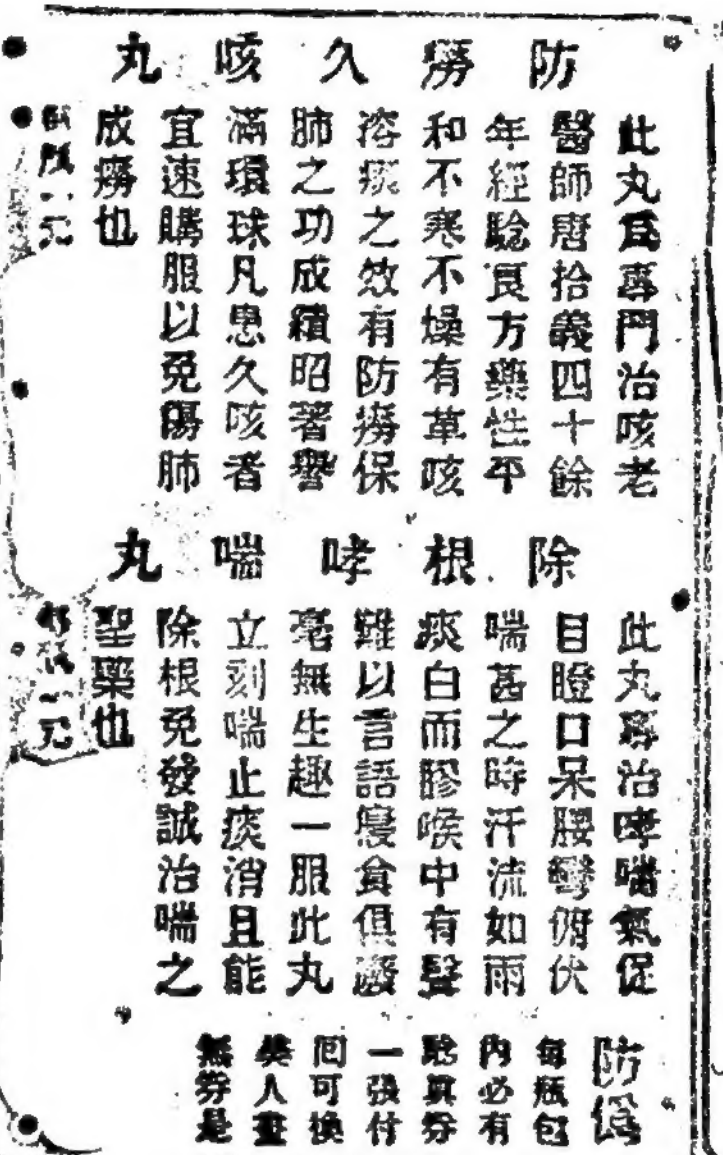 防癆久咳丸
此丸爲專門治咳老
醫師唐拾義四十餘
年經驗良方藥性平
和不寒不燥有革咳
溶痰之效有防癆保
肺之功成績昭著譽
滿環球凡患久咳者
宜速購服以免傷肺
成癆也
每瓶一元
除根哮喘丸
此丸專治哮喘氣促
目瞪口呆腰彎俯伏
喘甚之時汗流如雨
痰白而膠喉中有聲
難以言語寢食俱廢
毫無生趣一服此丸
立刻喘止痰消且能
除根免發誠治喘之
聖藥也
每瓶一元
防僞
每瓶包
內必有
驗真券
一張付
回可換
美人畫
無券是